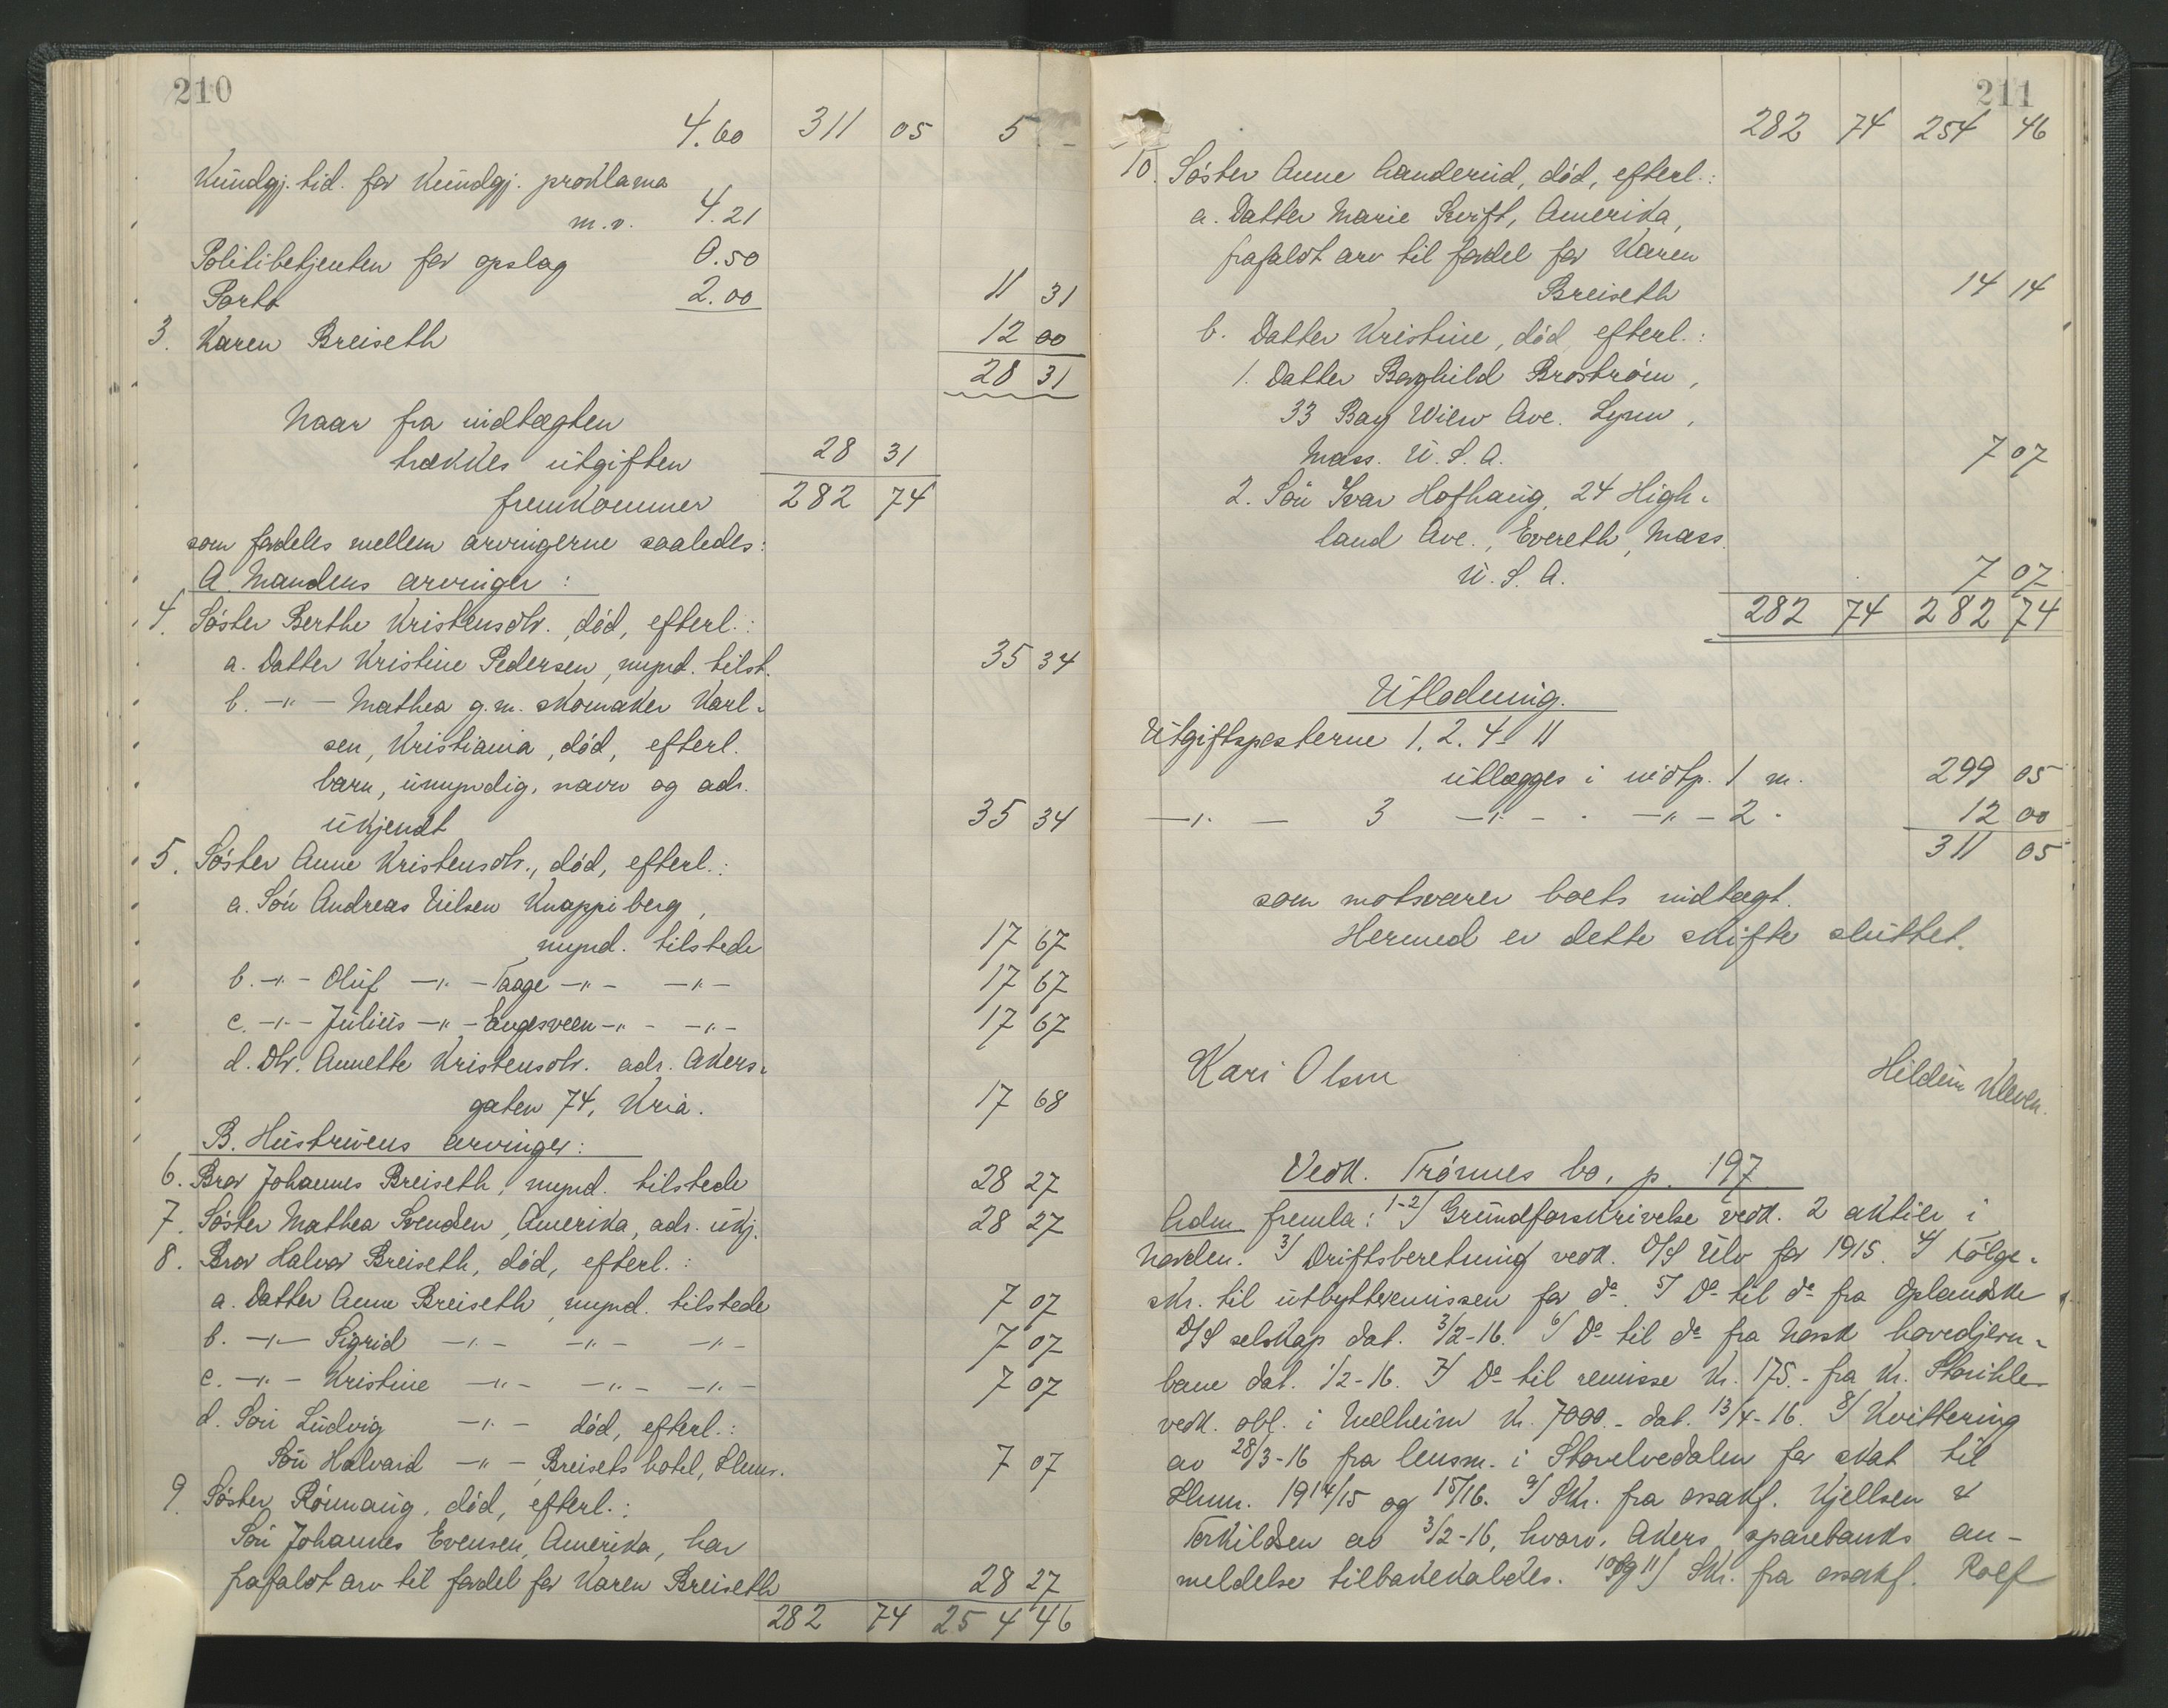 210
4.60 311 05 5
Kundgj. tid. for kundgj. proklama
m.v. 4.21
Politibetjenten for opslag 0.50
Porto 2.00 11 31
3. Karen Breiseth 12 00
28 31
Naar fra indtægten
trækkes utgiften 28 31
fremkommer 282 74
som fordeles mellem arvingerne saaledes:
A. Mandens arvinger:
4. Søster Berthe Kristensdtr. død, efterl.:
a. Datter Kristine Pedersen, mynd. tilst. 35 34
b. -"- Mathea g.m. skomaker Karl-
sen, Kristiania, død, efterl.
barn, umyndig, navn og adr.
ukjendt 35 34
5. Søster Anne Kristensdtr., død, efterl.:
a. Søn Andreas Nilsen Knappiberg,
mynd. tilstede 17 67
b. -"- Oluf -"- Taage -"- -"- 17 67
c. -"- Julius -"- Engesveen -"- -"- 17 67
d. Dtr. Annette Kristensdtr. adr. Akers-
gaten 74, Kria. 17 68
B. Hustruens arvinger:
6. Bror Johannes Breiseth, mynd. tilstede 28 27
7. Søster Mathea Svendsen, Amerika, adr. ukj. 28 27
8. Bror Halvor Breiseth, død, efterl.:
a. Datter Anne Breiseth, mynd. tilstede 7 07
b. -"- Sigrid -"- -"- -"- 7 07
c. -"- Kristine -"- -"- -"- 7 07
d. Søn Ludvig -"- død, efterl.:
Søn Halvard -"- Breisets hotel, Lhmr. 7 07
9. Søster Rønnaug, død, efterl.:
Søn Johannes Evensen, Amerika, har
frafaldt arv til fordel for Karen Breiseth 28 27
282 74 254 46
211
282 74 254 46
10. Søster Anne Handerud, død, efterl.:
a. Datter Marie Swift, Amerika,
frafaldt arv til fordel for Karen
Breiseth 14 14
b. Datter Kristine, død, efterl.:
1. Datter Borghild Brostrøm,
33 Bay Wiew Ave. Lynn,
Mass. U.S.A. 7 07
2. Søn Ivar Hofhaug, 24 High-
land Ave., Evereth, Mass.
U.S.A. 7 07
282 74 282 74
Utlodning.
Utgiftsposterne 1, 2, 4-11
utlægges i indtp. 1 m. 299 05
-"- - 3 -"- - -"- 2 - 12 00
311 05
som motsvarer boets indtægt.
Hermed er dette skifte sluttet.
Kari Olsen Hildeun Kleven.
Vedk. Trønnes bo, p. 197
Adm fremla: 1-2/ Grundforskrivelse vedk. 2 aktier i
Norden. 3/ Driftsberetning vedk. A/S Ulv for 1915. 4/ Følge-
skr. til utbytteremissen for do. 5/ Do til do fra Oplandske
D/S selskap dat. 3/2-16. 6/ Do til do fra Norsk hovedjern-
bane dat. 1/2-16. 7/ Do til remisse kr. 175.- fra Kr. Storihle
vedk. obl. i Melheim kr. 7000.- dat. 13/4-16. 8/ Kvittering
av 28/3-16 fra lensm. i Storelvedalen for skat til
Lhmr. 1914/15 og 15/16. 9/ Skr. fra orsakf. Kjellsen &
Torkildsen av 3/2-16, hvorv. Akers sparebanks an-
meldelse tilbakekaldes. 10 og 11/ Skr. fra orsakf. Rolf